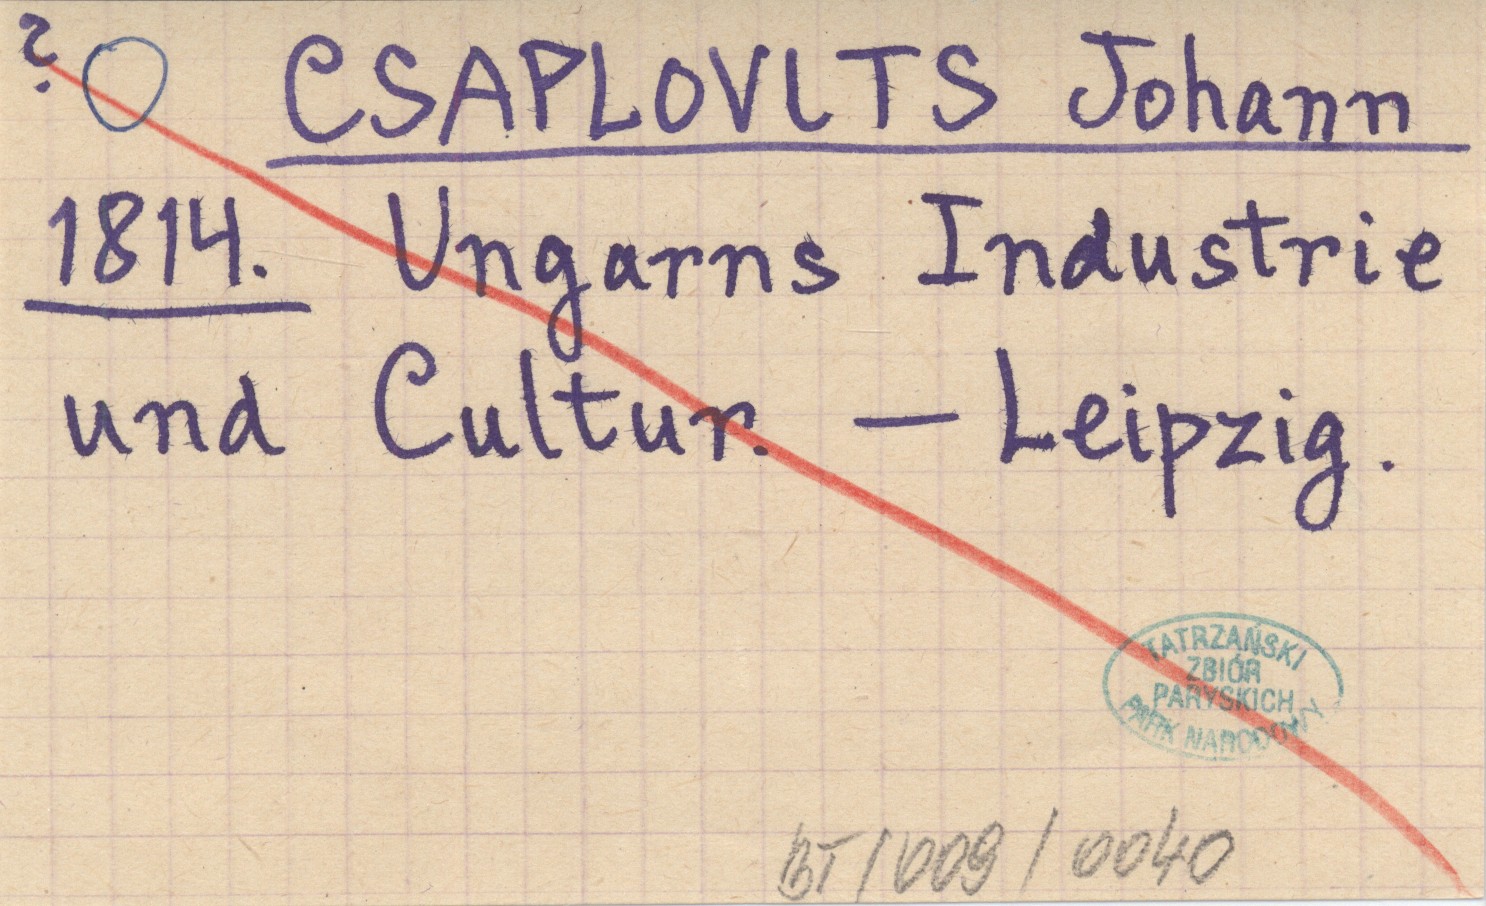 ?
CSAPLOVITS Johann
1814. Ungarns Industrie
und Cultur. — Leipzig.
TATRZAŃSKI
ZBIÓR
PARYSKICH
PARK NARODOWY
BT/009/0040